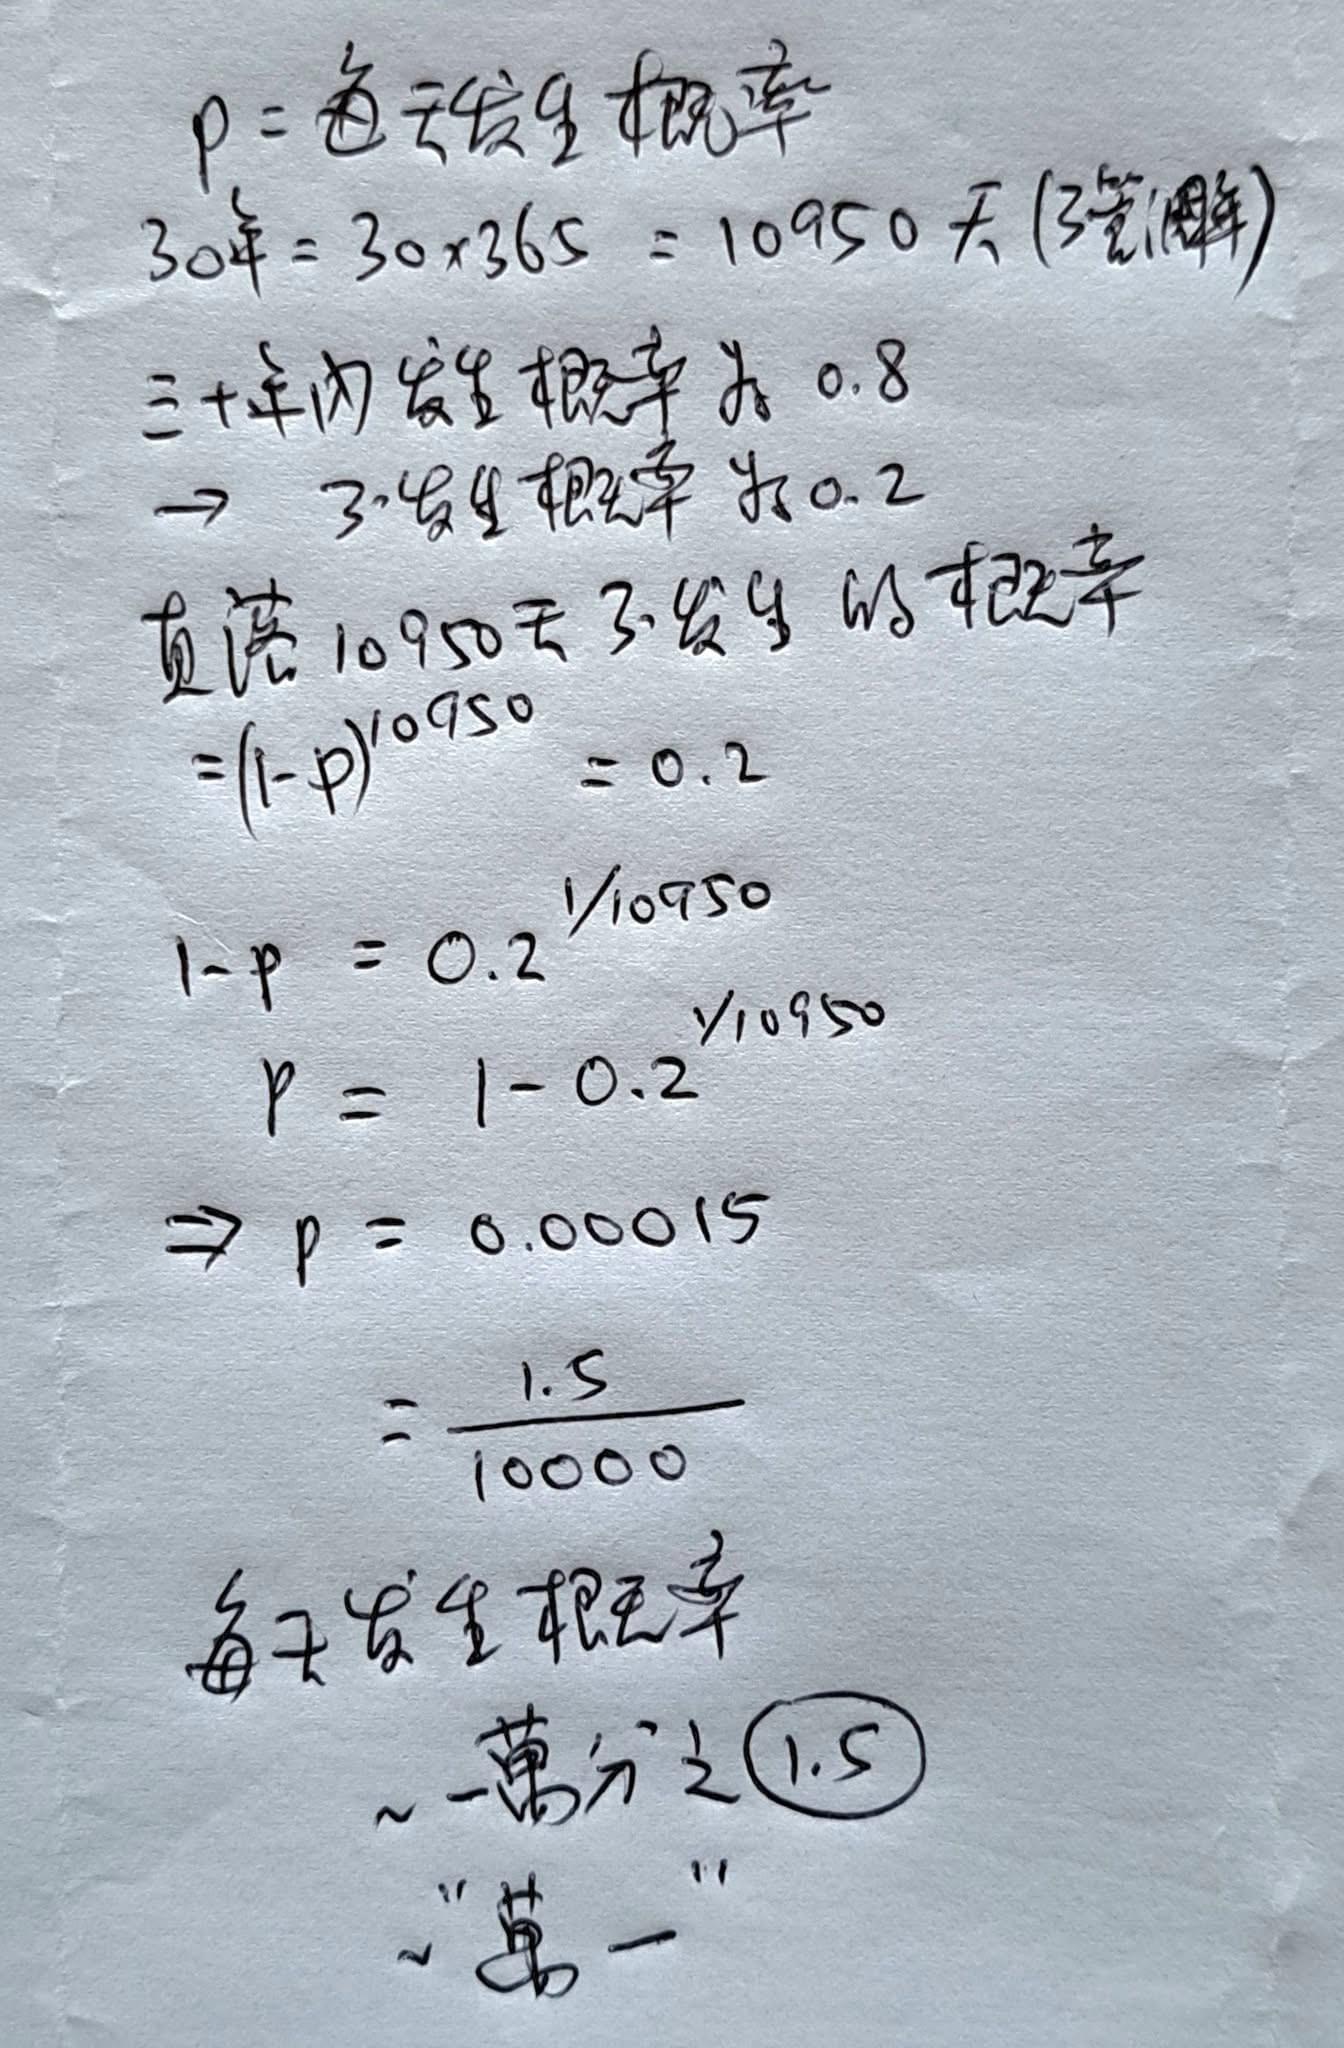 p = 每天发生概率
30年 = 30x365 = 10950 天 (不管闰年)
三十年内发生概率为 0.8
→ 不发生概率为 0.2
直落 10950天不发生的概率
= (1-p)^10950 = 0.2
1-p = 0.2^1/10950
p = 1 - 0.2^1/10950
⇒ p = 0.00015
= 1.5/10000
每天发生概率
~ 一萬分之 1.5
~ "萬一"